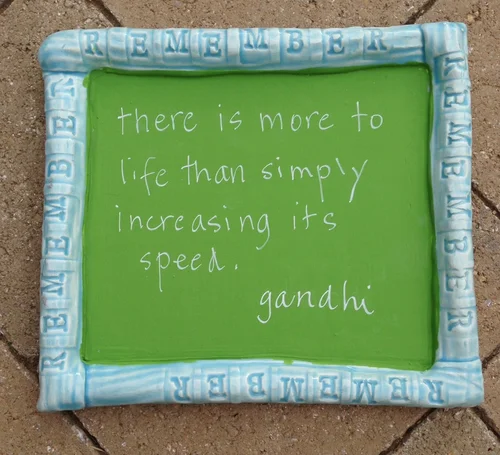 REMEMBER
there is more to
life than simply
increasing its
speed.
gandhi
REMEMBER
REMEMBER
REMEMBER